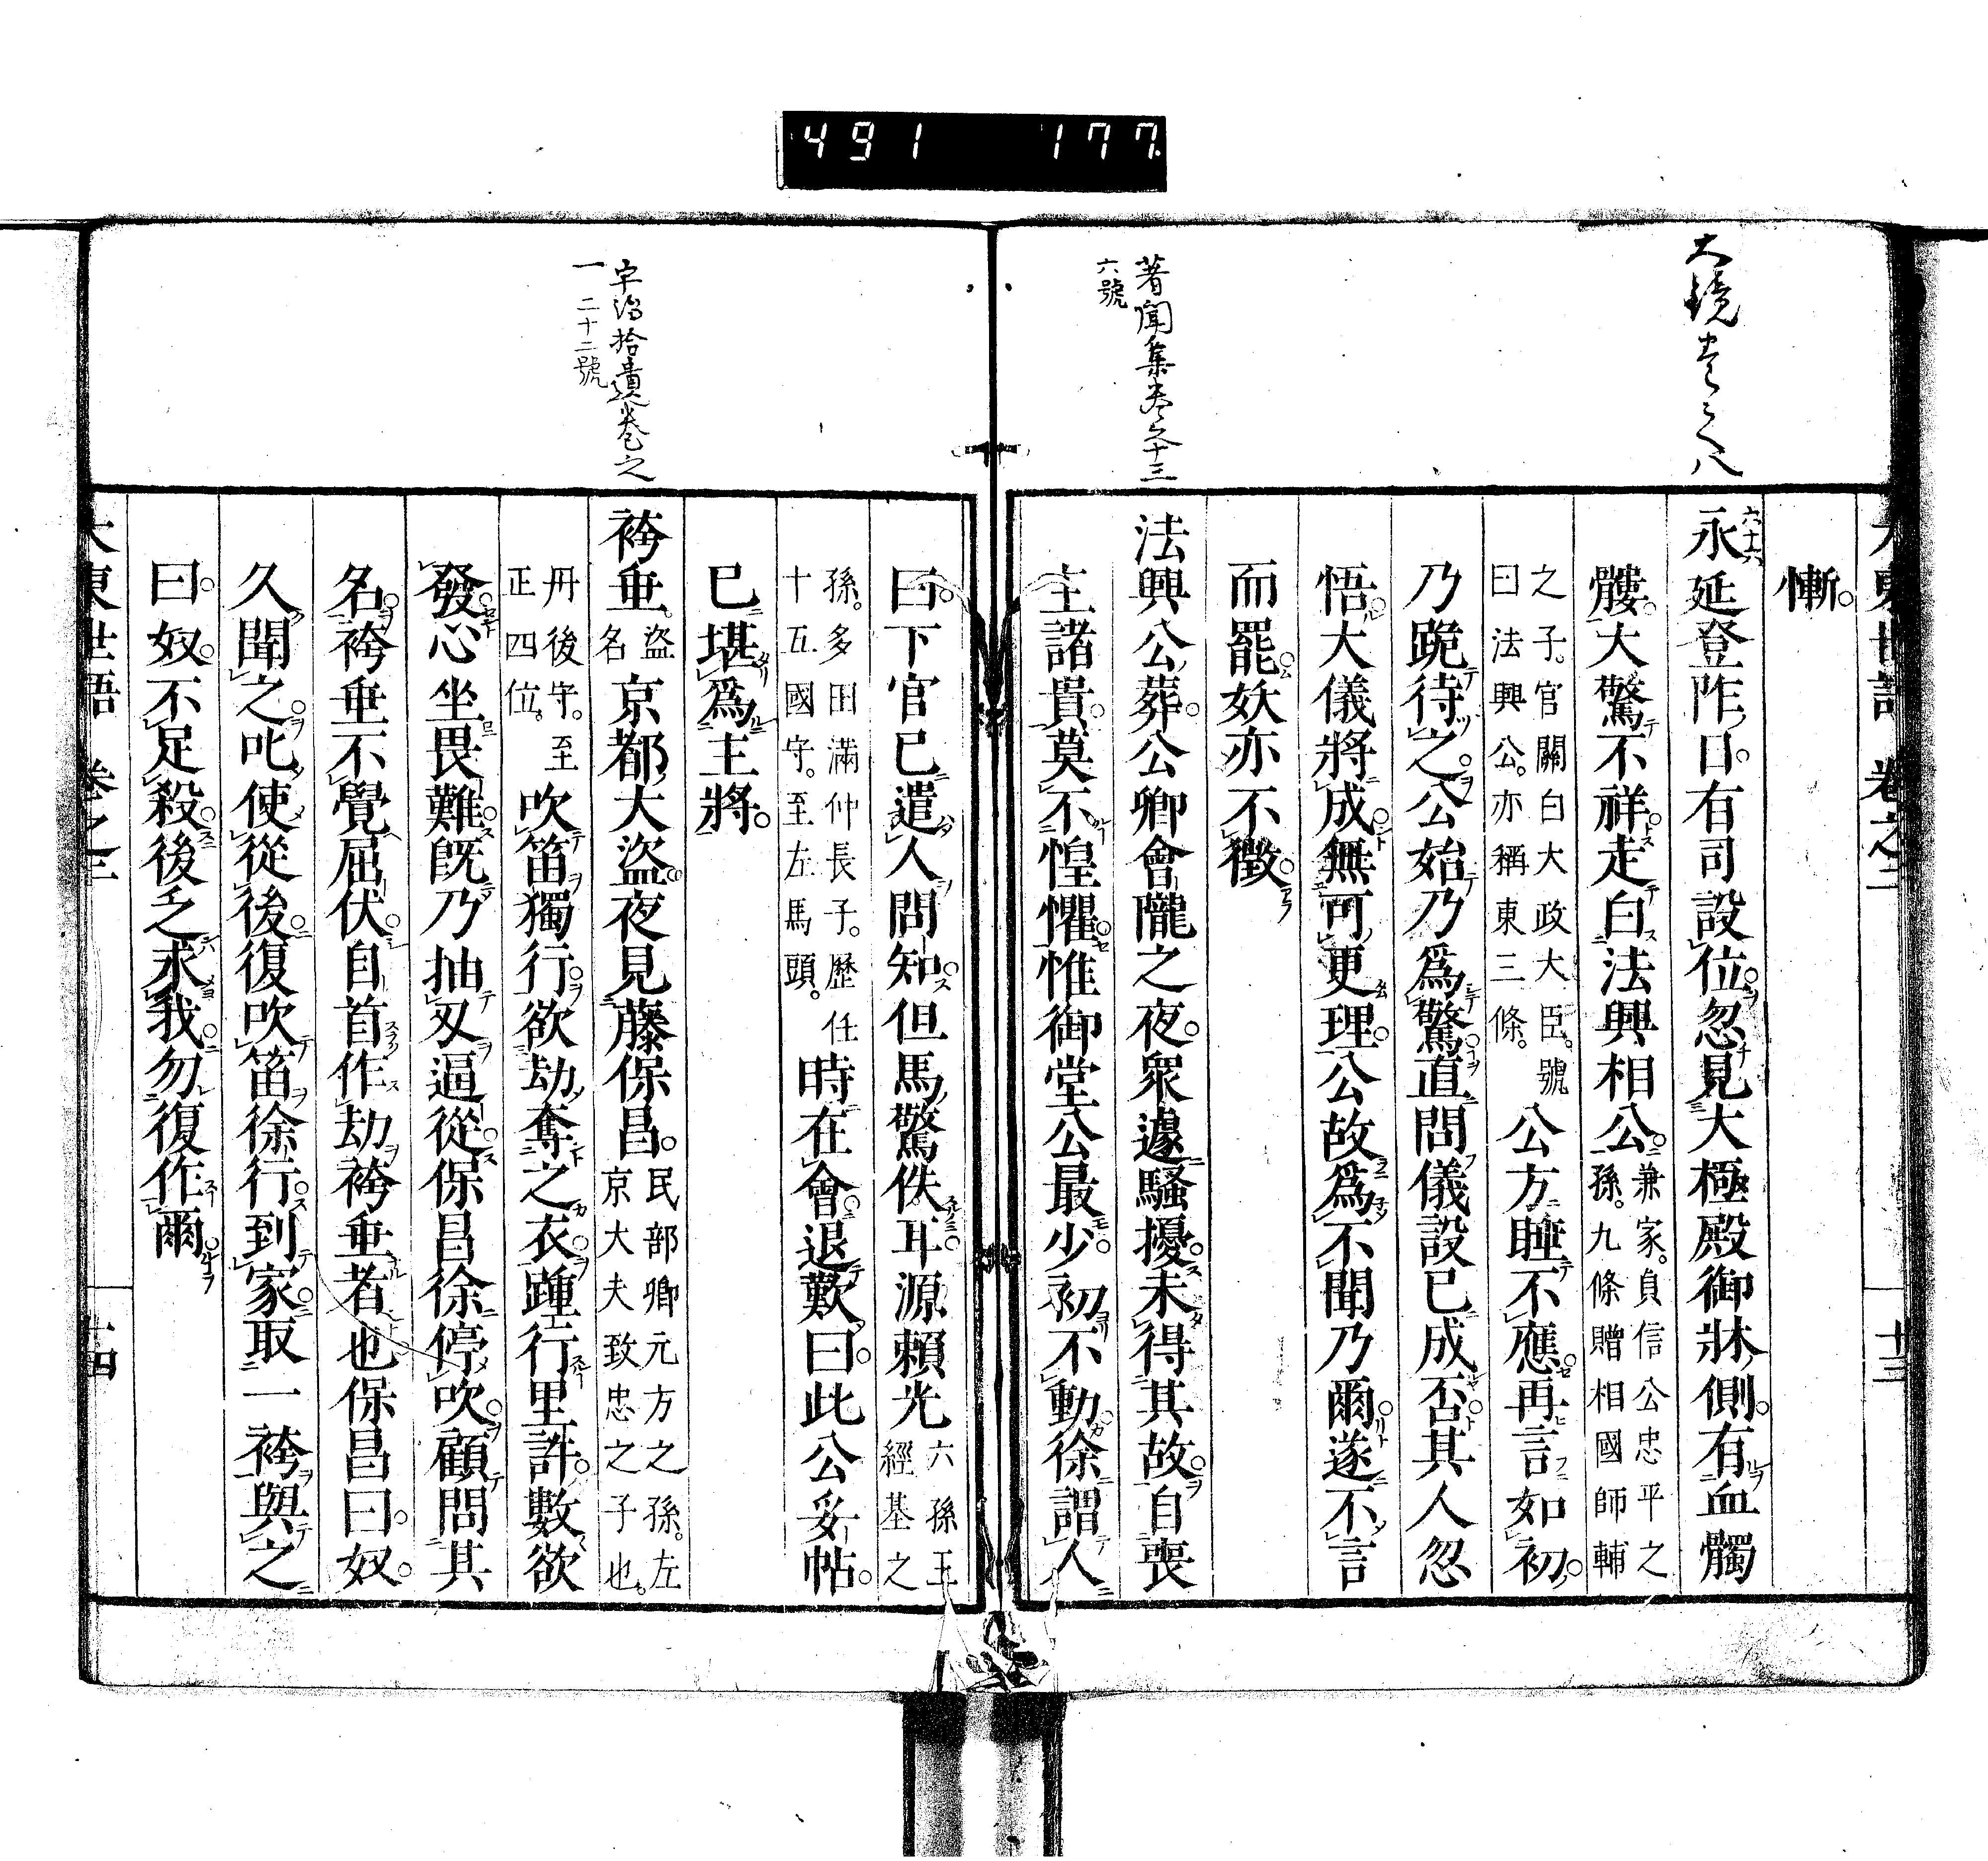 491 177
大鏡卷之八
著聞集卷之十三
六號
大東世語 卷之三 十三
慚
六十六
永延登阼日有司設位忽見大極殿御牀側有血髑
髏大驚不祥走白法興相公兼家貞信公忠平之孫九條贈相國師輔
之子官關白大政大臣號曰法興公亦稱東三條公方睡不應再言如初
乃跪待之公始乃爲驚直問儀設已成否其人忽
悟大儀將成無可更理公故爲不聞乃爾遂不言
而罷妖亦不徵
法興公葬公卿會隴之夜衆遽騷擾未得其故自喪
主諸貴莫不惶懼惟御堂公最少初不動徐謂人
宇治拾遺卷之
一 二十二號
曰下官已遣人問知但馬驚佚耳源賴光六孫王經基之
孫多田滿仲長子歷任十五國守至左馬頭時在會退歎曰此公妥帖
已堪爲主將
袴垂盜名京都大盜夜見藤保昌民部卿元方之孫左京大夫致忠之子也
丹後守至正四位吹笛獨行欲劫奪之衣踵行里許數欲
發心坐畏難旣乃抽刄逼從保昌徐停吹顧問其
名袴垂不覺屈伏自首作劫袴垂者也保昌曰奴
久聞之叱使從後復吹笛徐行到家取一袴與之
曰奴不足殺後乏之求我勿復作爾
大東世語 卷之三 十四